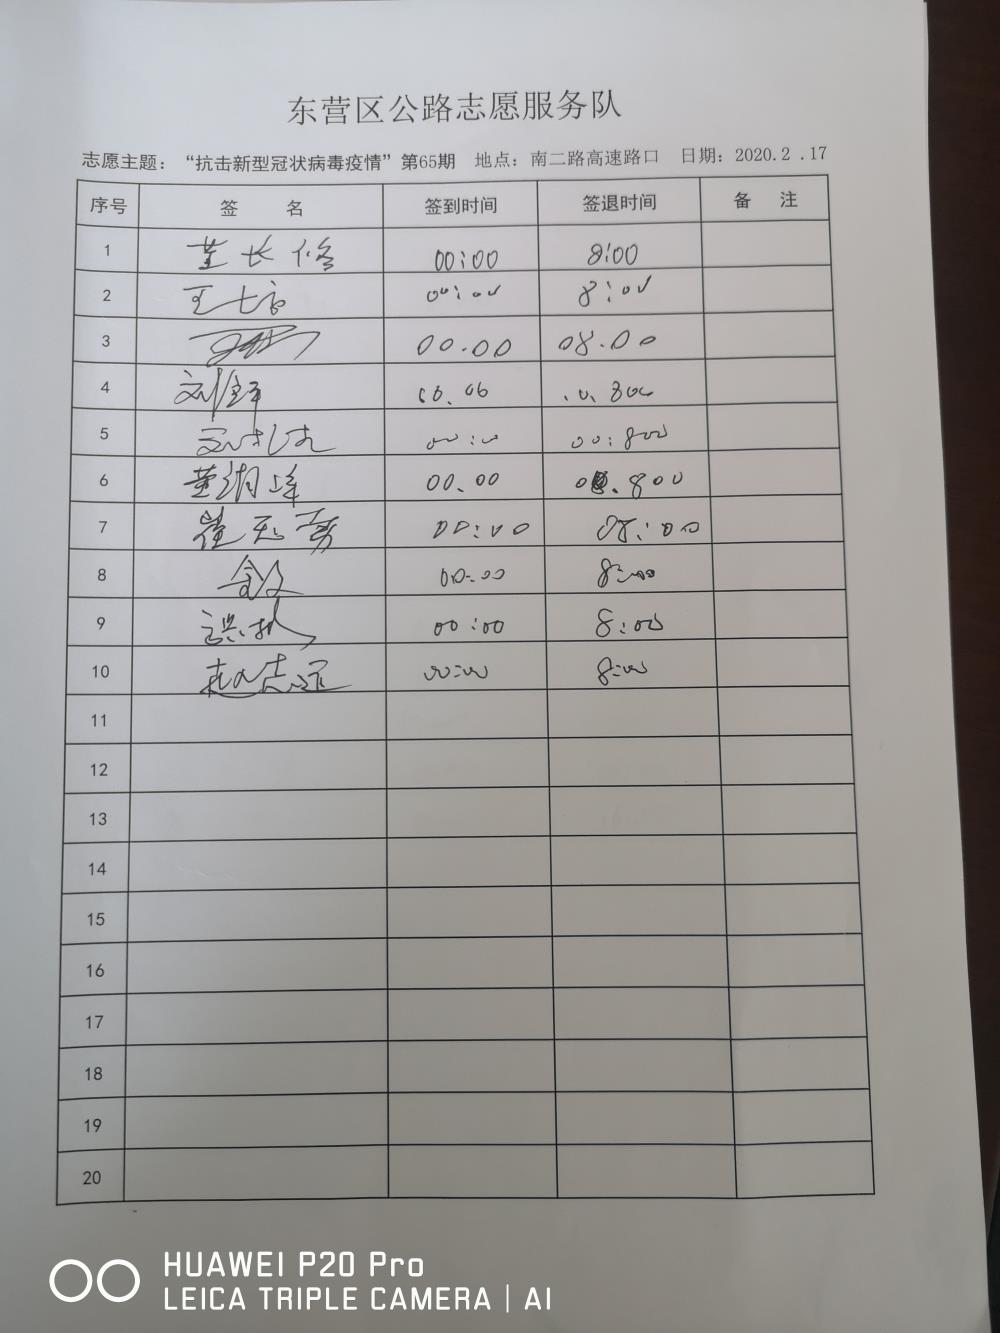 东营区公路志愿服务队
志愿主题：“抗击新型冠状病毒疫情”第65期 地点：南二路高速路口 日期：2020.2 .17
序号 签 名 签到时间 签退时间 备 注
1 董长修 00:00 8:00
2 00:00 8:00
3 00.00 08.00
4 00.00
5 00:00 00:800
6 00.00 .800
7 崔 勇 00:00 08:00
8 00:00 8:00
9 00:00 8:00
10 赵志 00:00 8:00
11
12
13
14
15
16
17
18
19
20
HUAWEI P20 Pro
LEICA TRIPLE CAMERA | AI